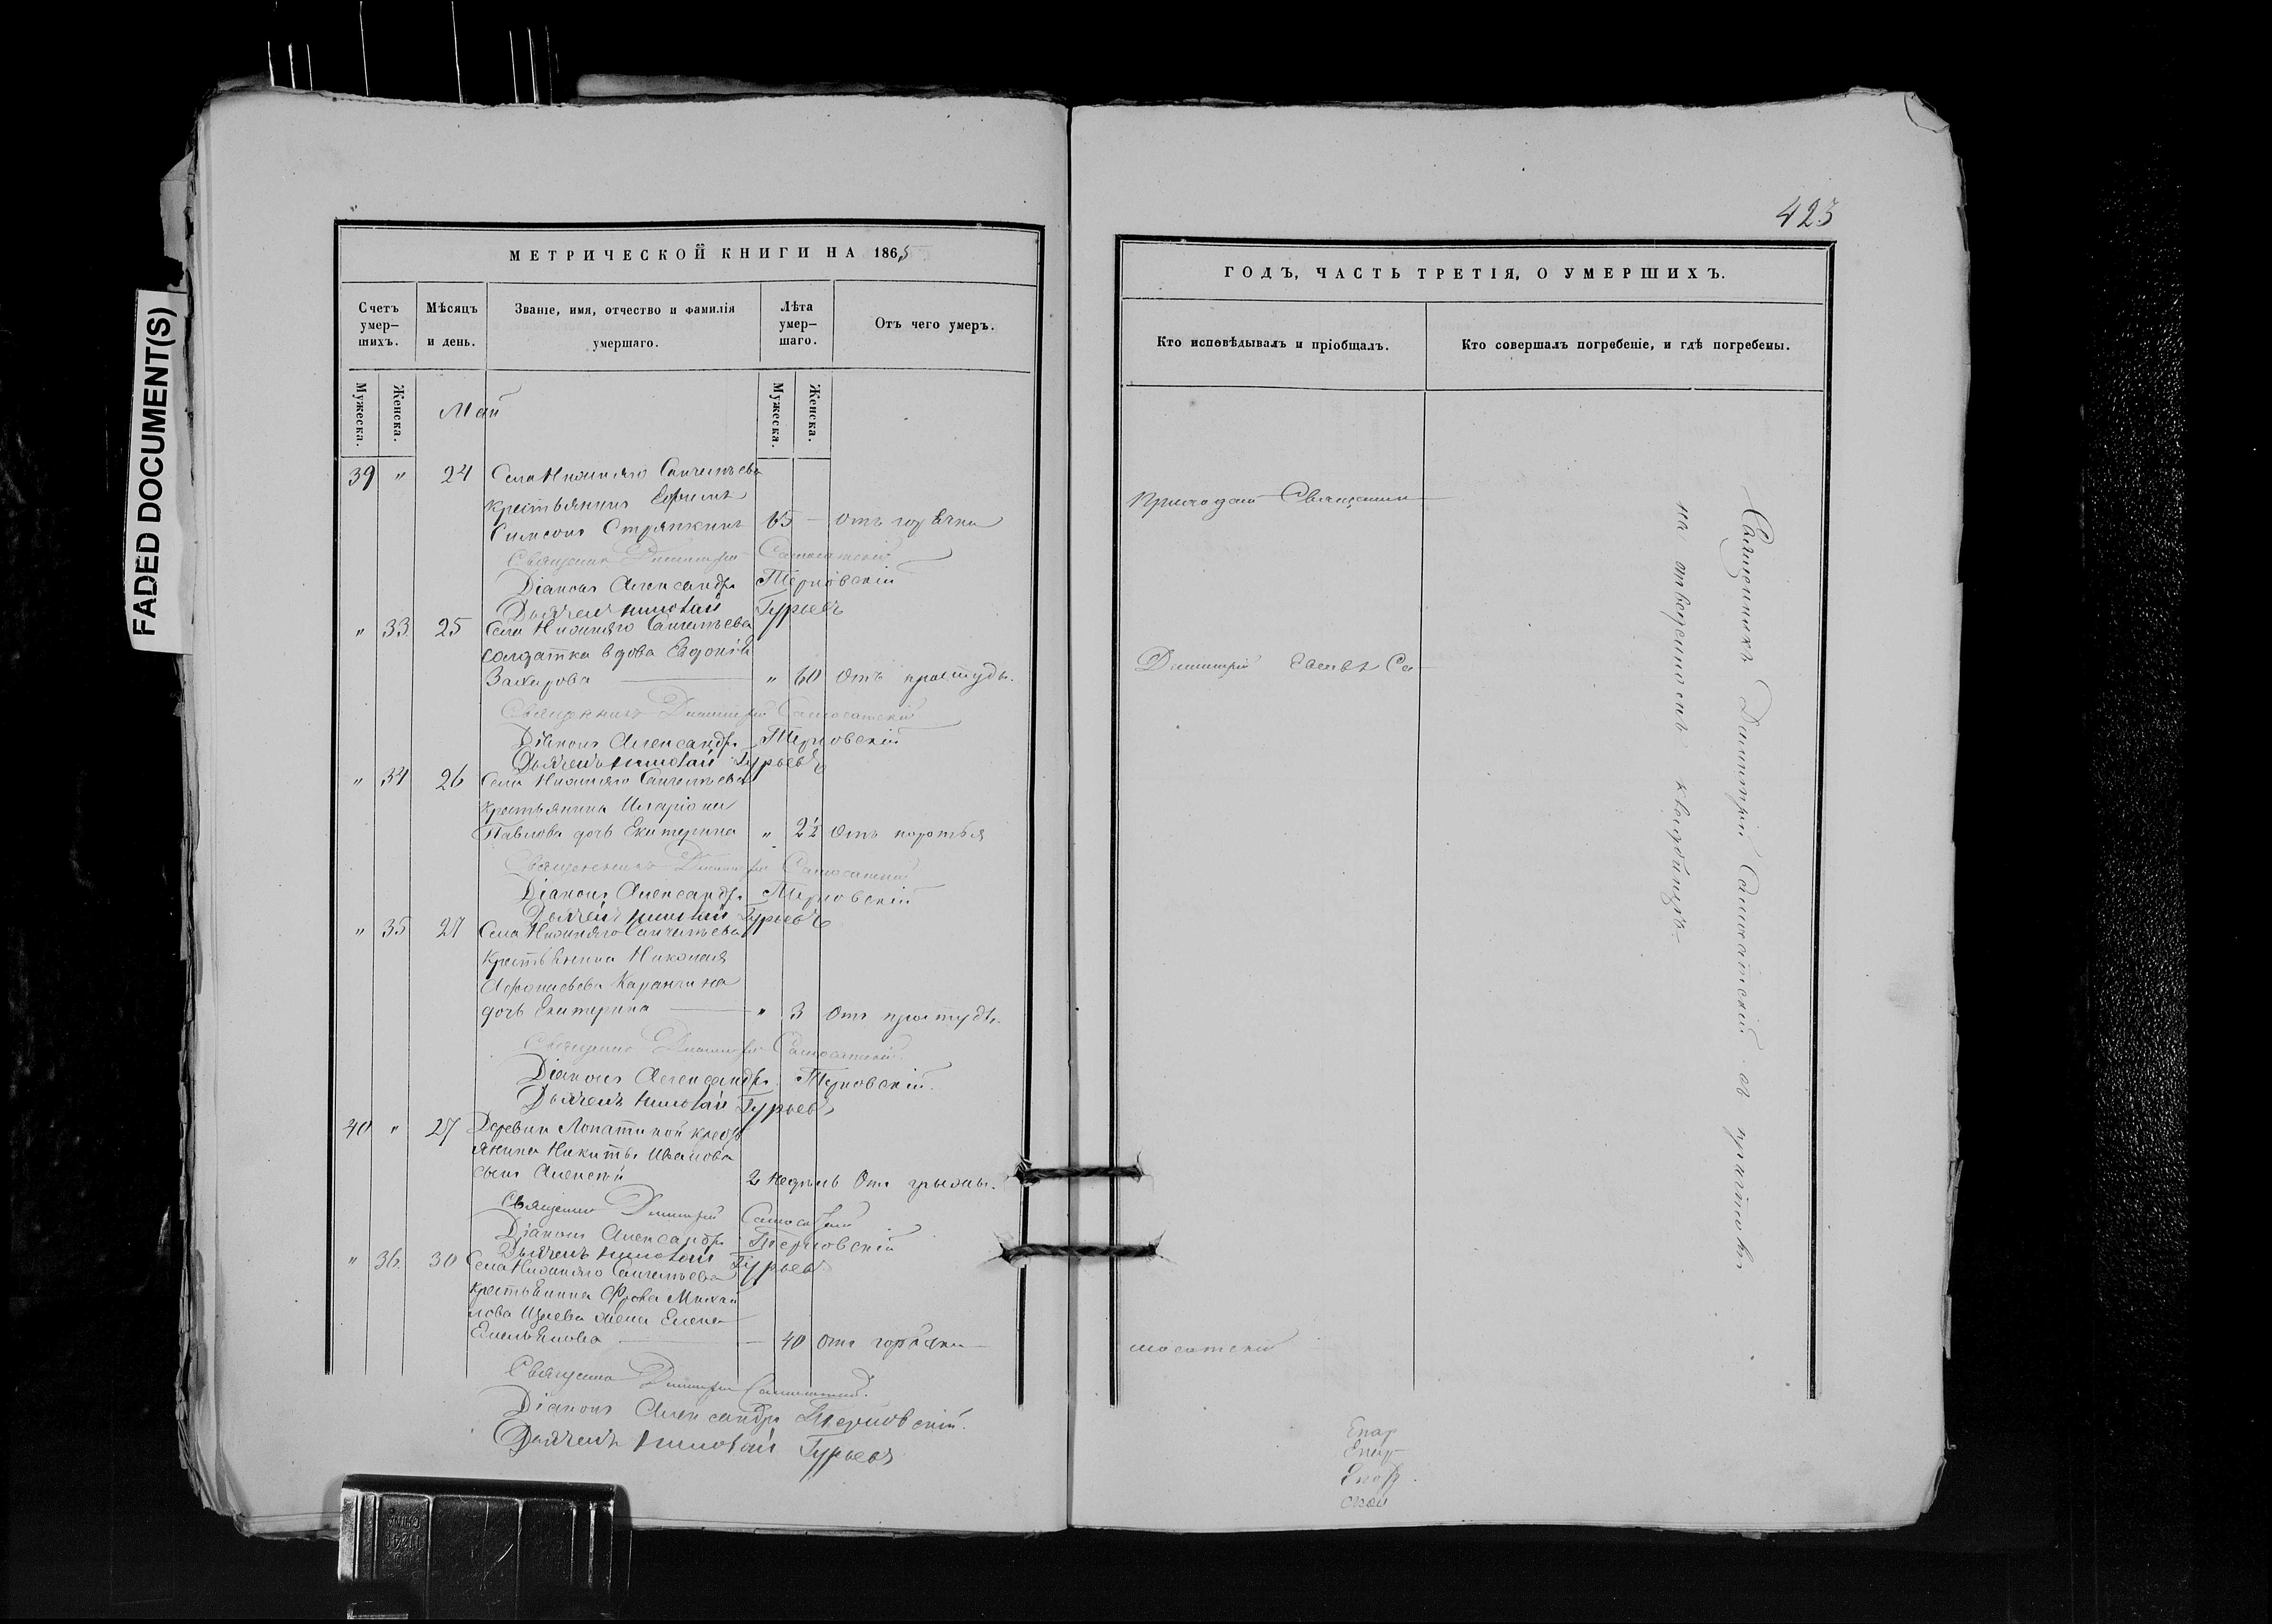 FADED DOCUMENT(S)
МЕТРИЧЕСКОЙ КНИГИ НА 1865
Счетъ умер-шихъ.
Мѣсяцъ и день.
Званіе, имя, отчество и фамилія умершаго.
Лѣта умер-шаго.
Отъ чего умеръ.
Мужеска.
Женска.
Мужеска.
Женска.
Май
39 " 24 Села Нижняго
крестьянинъ Ефимъ
Симеонъ Стряпкинъ 65 — отъ горячки
Священникъ Димитрій Самосатскій
Діаконъ Александръ Терновскій
Дьячекъ Николай Гурьевъ
" 33 25 Села Нижняго
солдатка вдова Евдокія
Захарова " 60 Отъ простуды.
Священникъ Димитрій Самосатскій
Діаконъ Александръ Терновскій
Дьячекъ Николай Гурьевъ
" 34 26 Села Нижняго
крестьянина Иларіона
Павлова дочь Екатерина " 2½ Отъ
Священникъ Димитрій Самосатскій
Діаконъ Александръ Терновскій
Дьячекъ Николай Гурьевъ
" 35 27 Села Нижняго
крестьянина Николая
дочь Екатерина " 3 Отъ простуды.
Священникъ Димитрій Самосатскій
Діаконъ Александръ Терновскій.
Дьячекъ Николай Гурьевъ
40 " 27 Деревни Лопатиной крестъ
янина Никиты Иванова
сынъ Алексѣй 2 недѣль Отъ грыжи.
Священникъ Димитрій Самосатскій
Діаконъ Александръ Терновскій
Дьячекъ Николай Гурьевъ
" 36. 30 Села Нижняго
крестьянина Фрола Михай
лова жена Елена
Емельянова — 40 Отъ горячки
Священникъ Димитрій Самосатскій.
Діаконъ Александръ Терновскій.
Дьячекъ Николай Гурьевъ
423
ГОДЪ, ЧАСТЬ ТРЕТІЯ, О УМЕРШИХЪ.
Кто исповѣдывалъ и пріобщалъ.
Кто совершалъ погребеніе, и гдѣ погребены.
Священникъ
Димитрій Са-
мосатскій
Священникъ Димитрій Самосатскій съ причтомъ
на отведенномъ кладбищѣ
Епар
Епар
ской